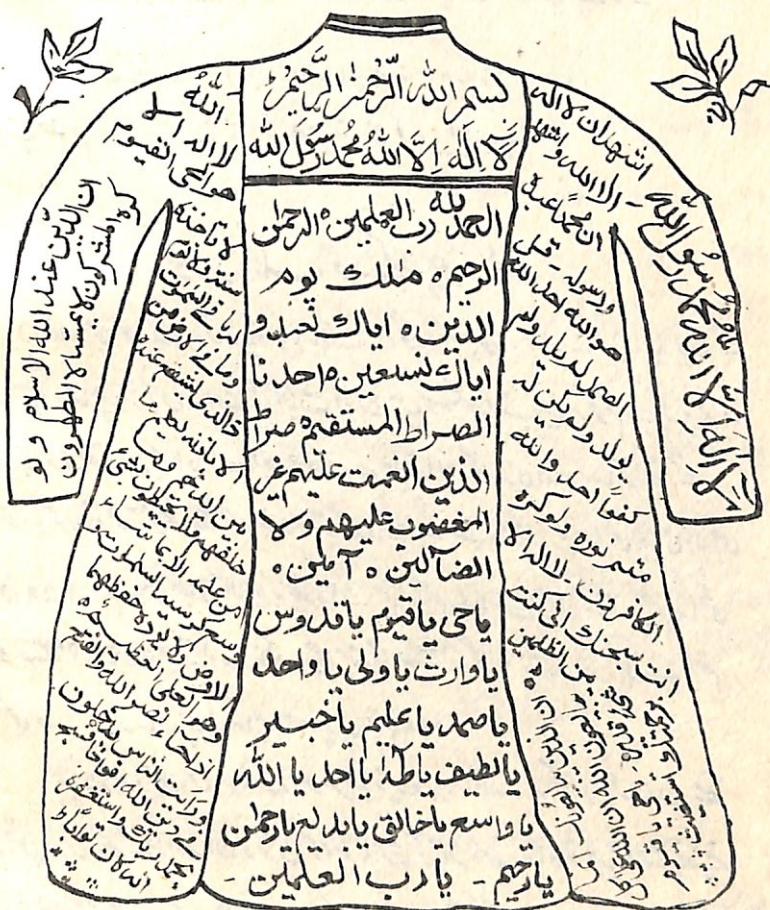 بسم الله الرحمن الرحيم
لا اله الا الله محمد رسول الله
الحمد لله رب العلمين ه الرحمن
الرحيم ه ملك يوم
الدين ه اياك نعبد و
اياك نستعين ه احدنا
الصراط المستقيم ه صراط
الذين انعمت عليهم غير
المغضوب عليهم ولا
الضآلين ه آمين ه
يا حى يا قيوم يا قدوس
يا وارث يا ولى يا واحد
يا صمد يا عليم يا خبير
يا لطيف يا طه يا احد يا الله
يا واسع يا خالق يا بديع يا رحمن
يا رحيم - يا رب العلمين -
اشهد ان لا اله
الا الله و اشهد
ان محمدا عبده
ورسوله - قل
هو الله احد الله
الصمد لم يلد ولم
يولد ولم يكن له
كفوا احد والله
متم نوره ولو كره
الكافرون - لا اله الا
انت سبحنك انى كنت
من الظلمين ه
ان الذين يبايعونك انما
يبايعون الله ان الله على كل
شئ قدير - يا حى يا قيوم
برحمتك استغيث
لا اله الا الله محمد رسول الله
الله
لا اله الا
هو الحى القيوم
لا تاخذه
سنة ولا نوم
له ما فى السموت
وما فى الارض من
ذالذى يشفع عنده
الا باذنه يعلم ما
بين ايديهم وما
خلفهم ولا يحيطون بشئ
من علمه الا بما شاء
وسع كرسيه السموت
والارض ولا يوده حفظهما
وهو العلى العظيم ه
اذا جاء نصر الله والفتح
ورايت الناس يدخلون
فى دين الله افواجا فسبح
بحمد ربك واستغفره
انه كان توابا
ان الدين عند الله الاسلام و لو
كره المشركون لا يمسه الا المطهرون